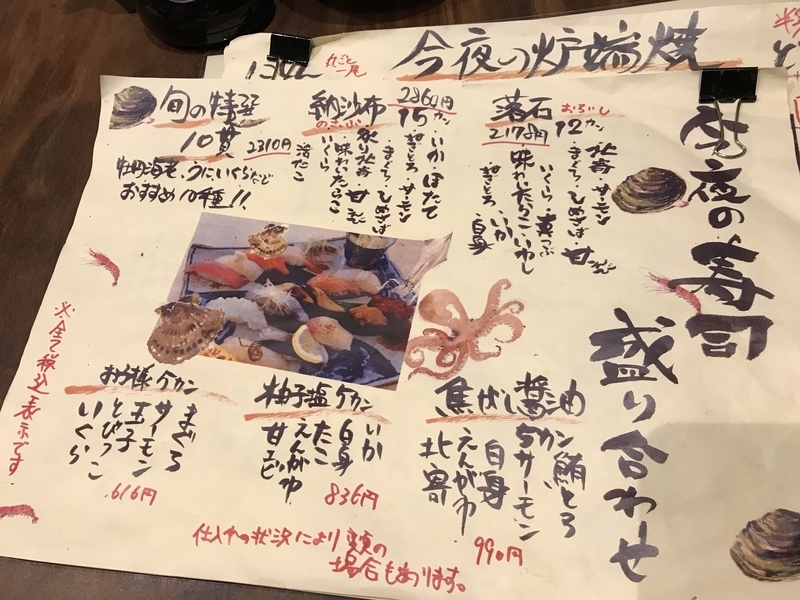 今夜の炉端焼
丸ごと
一尾
今夜の寿司
盛り合わせ
落石
おちいし
2178円
12カン
サーモン
まぐろ・ひめさば・甘えび
いくら
味わいたらこ・いわし
ねぎとろ
いか
白身
納沙布
のさっぷ
2860円
15カン
いか・ほたて
サーモン
まぐろ・ひめさば
甘えび
味わいたらこ
いくら
旬の特選
10貫
2310円
牡丹海老、うに、いくらなど
おすすめ10種!!
焦がし醤油
5カン
鮪とろ
サーモン
白身
えんがわ
北寄
990円
柚子塩ケカン
いか
白身
たこ
えんがわ
甘エビ
836円
お子様ケカン
まぐろ
サーモン
玉子
とびっこ
いくら
616円
※全て税込表示です。
仕入れの状況により変更の
場合もあります。